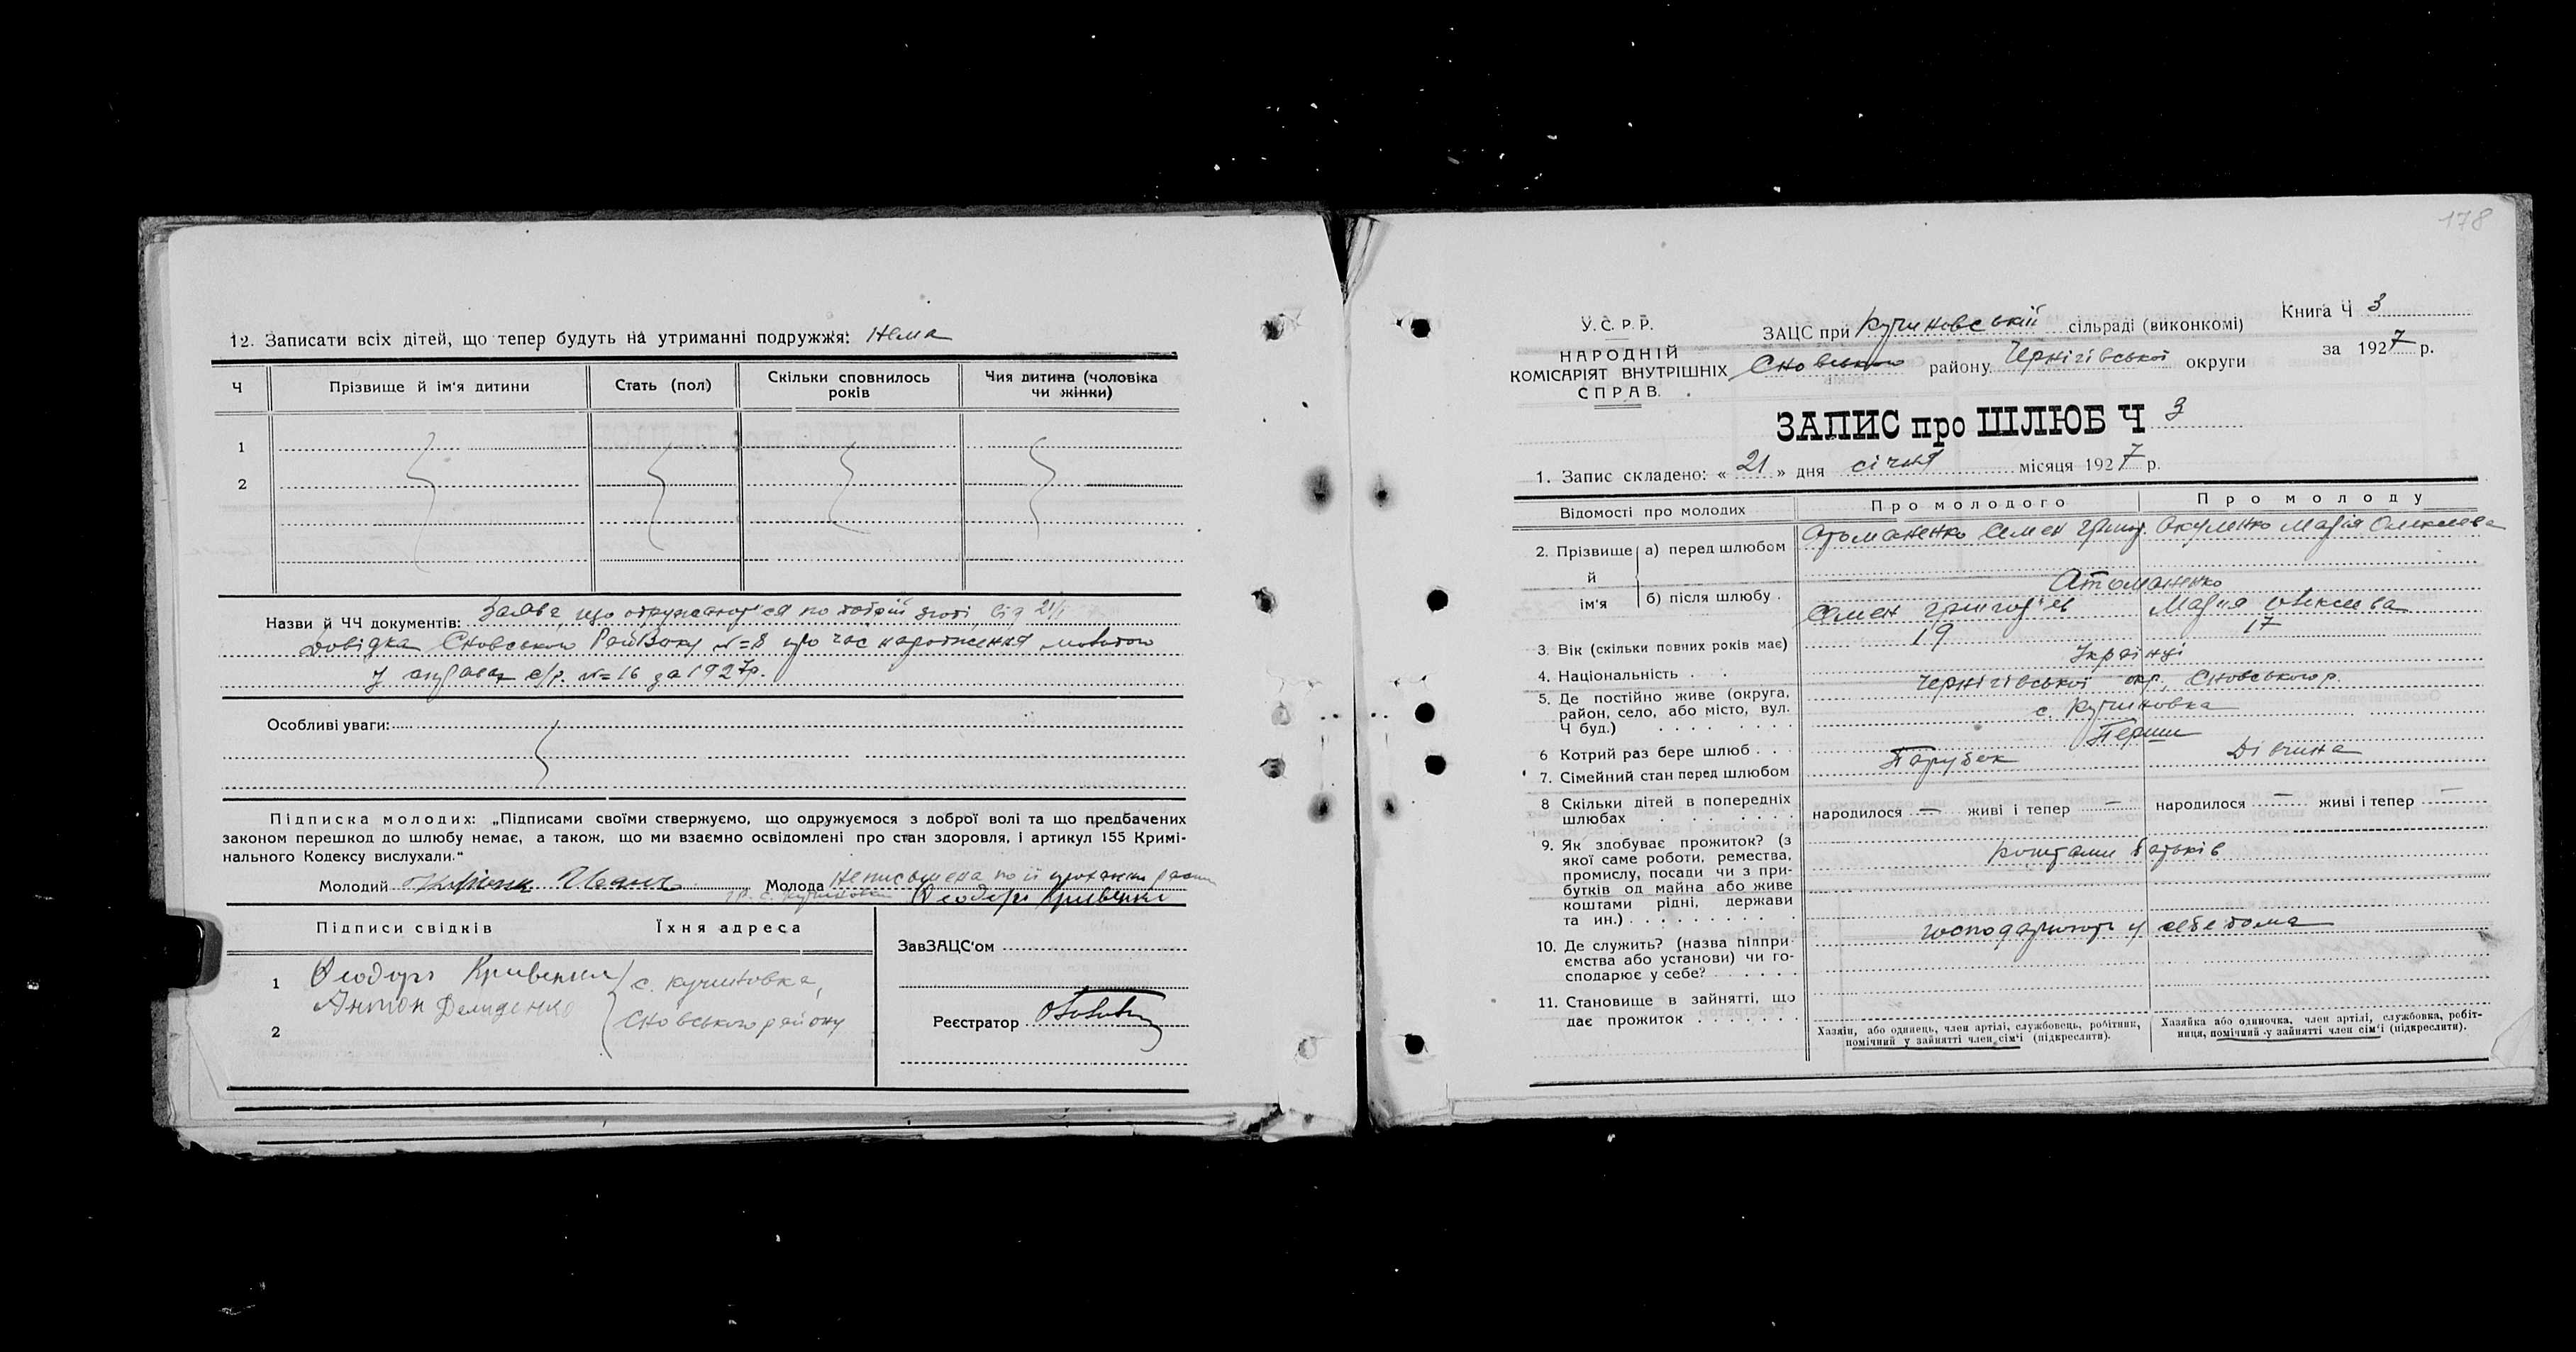 12. Записати всіх дітей, що тепер будуть на утриманні подружжя: Нема
Ч Прізвище й ім'я дитини Стать (пол) Скільки сповнилось років Чия дитина (чоловіка чи жінки)
1
2
Назви й ЧЧ документів: Заява, що одружаються по добрій згоді, від 21/I
Довідка Сновського №=8 про час народження молодого
у справах с/р. №=16 за 1927р.
Особливі уваги:
Підписка молодих: „Підписами своїми ствержуємо, що одружуємося з доброї волі та що предбачених
законом перешкод до шлюбу немає, а також, що ми взаємно освідомлені про стан здоровля, і артикул 155 Кримі-
нального Кодексу вислухали."
Молодий Иванъ Молода неписьмена по її
гр. с. Кучиновки Феодоръ Кривенко
Підписи свідків Їхня адреса
1 Феодоръ Кривенко с. Кучиновка,
Антон Демиденко
2 Сновського району
ЗавЗАЦС'ом
Реєстратор
178
У. С. Р. Р.
НАРОДНІЙ
КОМІСАРІЯТ ВНУТРІШНІХ
СПРАВ.
ЗАЦС при Кучиновській сільраді (виконкомі)
Сновського району Чернігівської округи
Книга Ч 3
за 1927 р.
ЗАПИС про ШЛЮБ Ч 3
1. Запис складено: « 21 » дня січня місяця 1927 р.
Відомості про молодих Про молодого Про молоду
2. Прізвище й ім'я а) перед шлюбом Атоманенко Семен Григор. Акуленко Марія Олексієва
б) після шлюбу . Атоманенко
Семен Григор'єв Марія Олексієва
3. Вік (скільки повних років має) 19 17
4. Національність . . Українці
5. Де постійно живе (округа, район, село, або місто, вул. Ч буд.) . . . . Чернігівської окр., Сновського р.
с. Кучиновка
6 Котрий раз бере шлюб . . . Перший
7. Сімейний стан перед шлюбом Парубок Дівчина
8 Скільки дітей в попередніх шлюбах . . . . . . народилося — живі і тепер — народилося — живі і тепер —
9. Як здобуває прожиток? (з якої саме роботи, ремества, промислу, посади чи з прибутків од майна або живе коштами рідні, держави та ин.) . . . . . . . . . Коштами батьків
10. Де служить? (назва підприємства або установи) чи господарює у себе? . . . . . господарюють у себе дома
11. Становище в зайнятті, що дає прожиток . . . . . . .
Хазяін, або одинець, член артілі, службовець, робітник, помічний у зайнятті член сім'ї (підкреслити).
Хазяйка або одиночка, член артілі, службовка, робітниця, помічний у зайнятті член сім'ї (підкреслити).